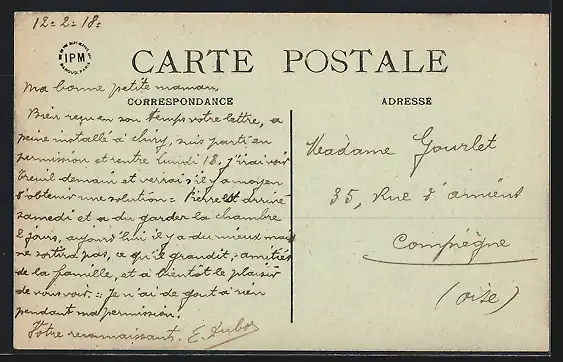 12-2-18-
IPM
CARTE POSTALE
Ma bonne petite maman,
CORRESPONDANCE
ADRESSE
Bien reçu en son temps votre lettre, a
peine installé à Chiry, suis parti en
permission et rentre lundi 18. J'irai voir
Treuil demain et verrai s'il y a moyen
d'obtenir une solution = Pierre est arrivé
samedi et a du garder la chambre
2 jours, aujourd'hui il y a du mieux mais
ne sortira pas, ce qu'il grandit = amitiés
de la famille, et à bientôt le plaisir
de vous voir. = Je n'ai de gout à rien
pendant ma permission.
Votre reconnaissant. E.
Madame Gourlet
35, Rue d'amiens
Compiègne
(oise)